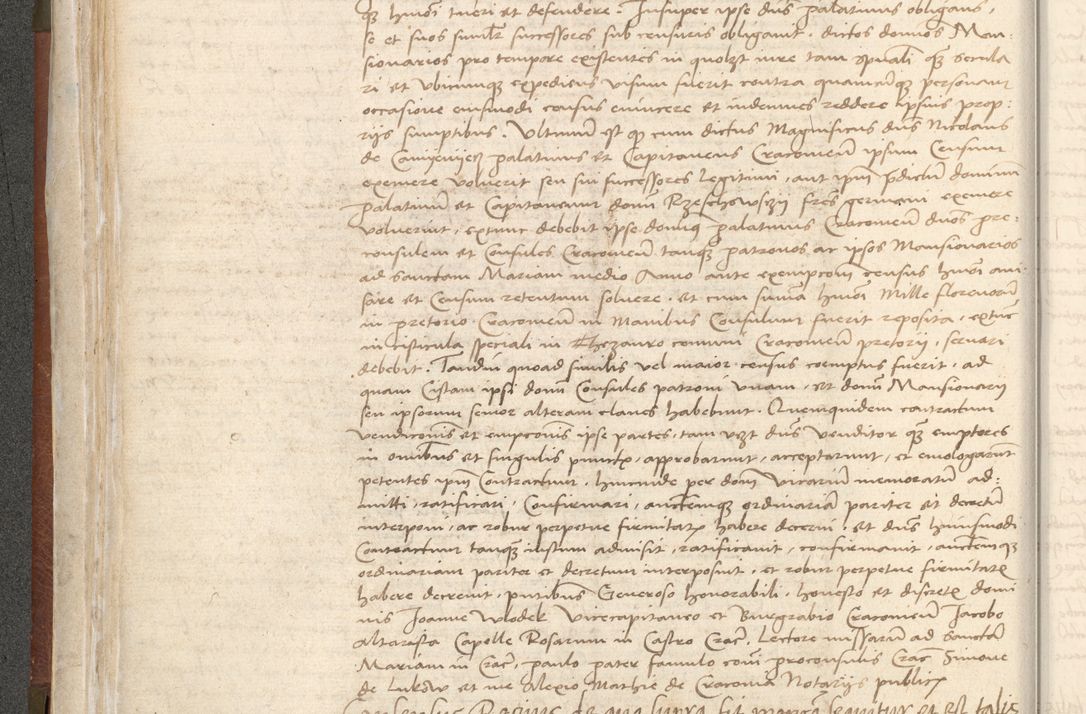 q̃ hmõi tueri et defendere. Insuper ipse dns palatinus obligans,
se et suos similr successores sub censuris obligavit. dictos domnos Man:
sionarios pro tempore existentes in quolzt iure tam spuali q̃ secula
ri et ubicunq̃ expediens visum fuerit contra quamcunq̃ personam
occasione eiusmodi census evincere et indemnes reddere ipsius prop:
rijs sumptibus. Ultimum est q̃ cum dictus Magnificus dns Nicolaus
de palatinus et Capitaneus Cracovien ipsum Censum
exemere voluerit seu sui successores legitimi, aut ipm pdictum dominum
palatinum et Capitaneum domi fres germani exemere
voluerint, extunc debebit ipse domnq palatinus Cracovien dnos pro:
consulem et Consules Cracovien tanq̃ patronos ac ipsos Mansionarios
ad sanctam Mariam medio Anno ante exempcom census hmõi avi
sare et Censum retentum solvere. et cum suma hmõi Mille florenorum
in pretorio Cracovien in Manibus Consulum fuerit reposita, extunc
in cistula speciali in Thezauro comuni Cracovien pretorij, servari
debebit. Tamdiu quoad similis vel maior census coemptus fuerit, ad
quam Cistam ipsi domi Consules patroni unam, et domi Mansionarij
seu ipsorum senior alteram claves habebunt. Quemquidem contractum
vendiconis et empconis ipse partes, tam vezt dns venditor q̃ emptores
in omibus et singulis punctis, approbarunt, acceptarunt, et emologarunt
petentes ipm Contractum, hincinde per domi Vicarium memoratum ad:
mitti, ratificari, Confirmari, auctemq̃ ordinariam pariter et decretum
interponi, ac robur perpetue firmitatis habere decerni. et dns huiusmodi
Contractum tanq̃ iustum admisit, ratificavit, confirmavit, auctemq̃
ordinariam pariter et decretum interposuit, et robur perpetue firmitatis
habere decrevit, pntibus Generoso honorabili, honesto et discretis domi
nis Joanne Wlodek Vicecapitaneo et Burgrabio Cracovien Jacobo
altarista Capelle Rosarum in Castro Crac, Lectore missarum ad sanctam
Mariam in Crac, paulo pater famulo comi proconsulis Crac Simone
de Lukow et me Alexio Mathie de Cracovia Notarijs publicis